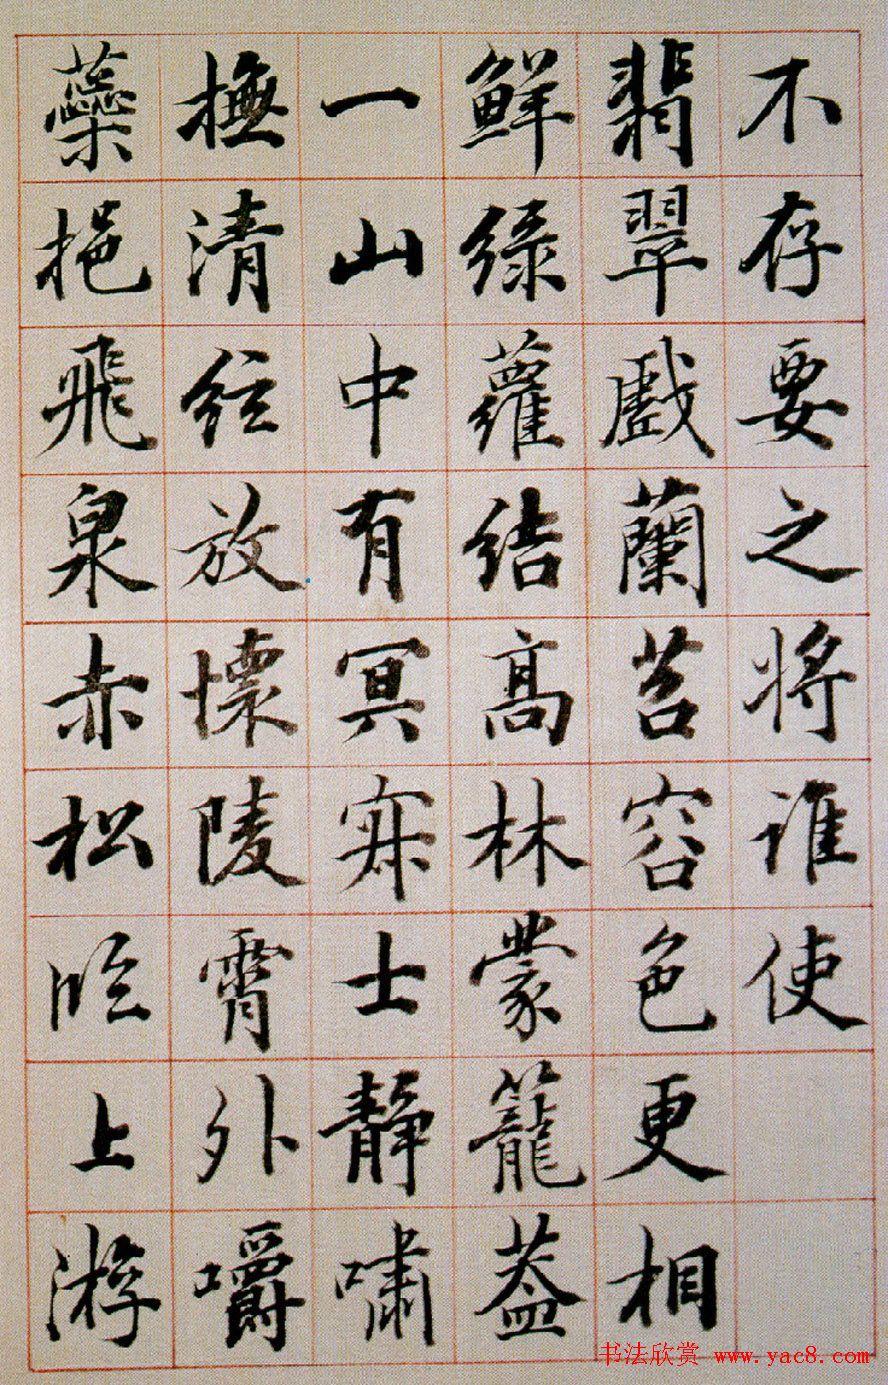 不存要之將誰使
翡翠戲蘭苕容色更相
鮮綠蘿結髙林蒙籠蓋
一山中有冥寂士靜嘯
撫清絃放懷陵霄外嚼
蘂挹飛泉赤松臨上游
书法欣赏 www.yac8.com